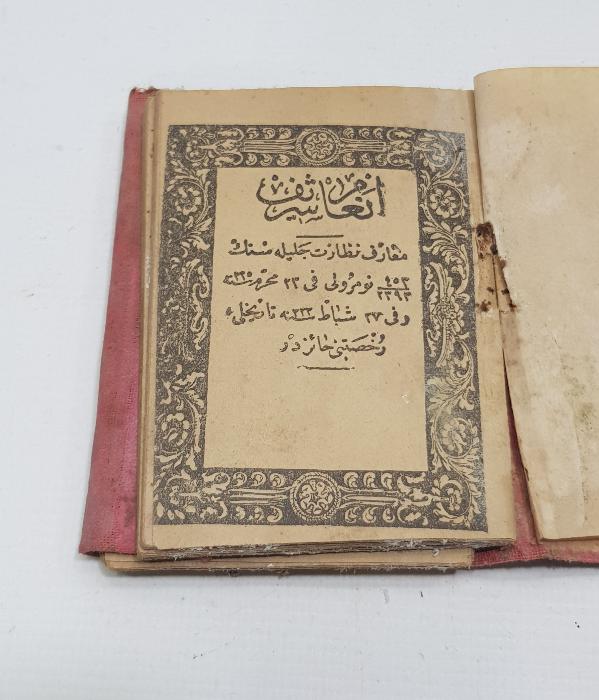 انعام شريف
معارف نظارت جليله سنك
نومرولى فى ٢٣ محرم سنه
وفى ٢٧ شباط سنه تاريخلى
رخصتنى حائزدر